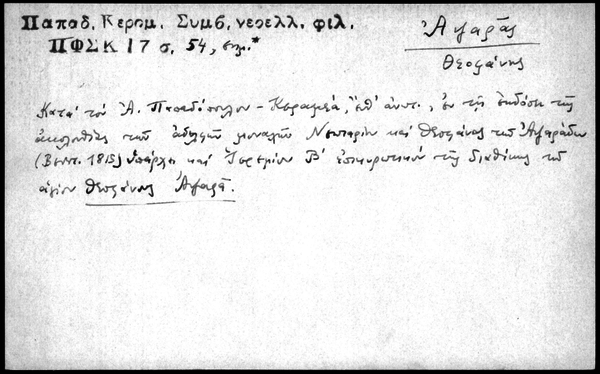 Παπαδ. Κεραμ. Συμβ. νεοελλ. φιλ.
ΠΦΣΚ 17 σ. 54, σημ.*
Ἀψαρᾶς
Θεοφάνης
Κατὰ τὸν Ἀ. Παπαδόπουλον-Κεραμέα, ἔνθ' ἀνωτ., ἐν τῇ ἐκδόσει τῆς
ἀκολουθίας τῶν ἀδελφῶν μοναχῶν Νεκταρίου καὶ Θεοφάνους τῶν Ἀψαράδων
(Βενετ. 1815) ὑπάρχει καὶ Ἱερεμίου Β' ἐπικυρωτικὸν τῆς διαθήκης τοῦ
ἁγίου Θεοφάνους Ἀψαρᾶ.